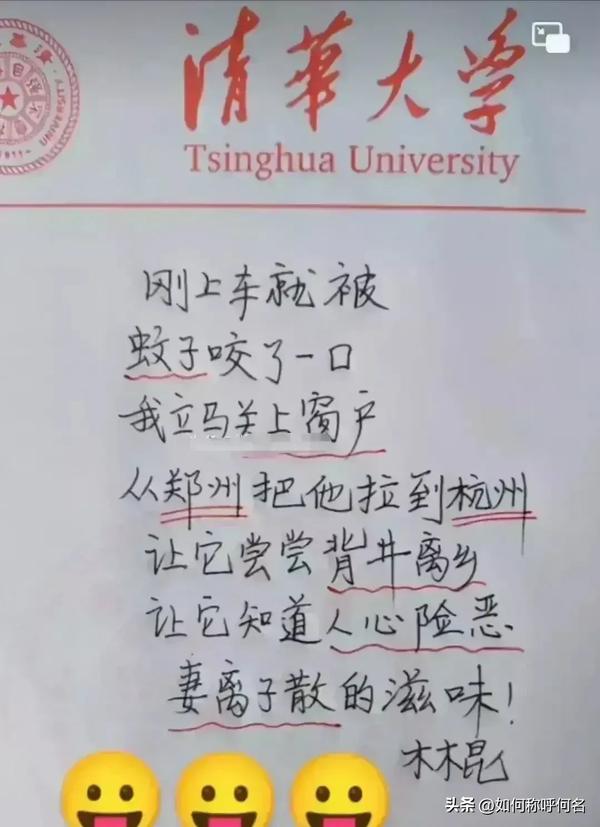 清华大学
Tsinghua University
UNIVERSITY
1911
刚上车就被
蚊子咬了一口
我立马关上窗户
从郑州把他拉到杭州
让它尝尝背井离乡
让它知道人心险恶
妻离子散的滋味!
木木昆
头条 @如何称呼何名